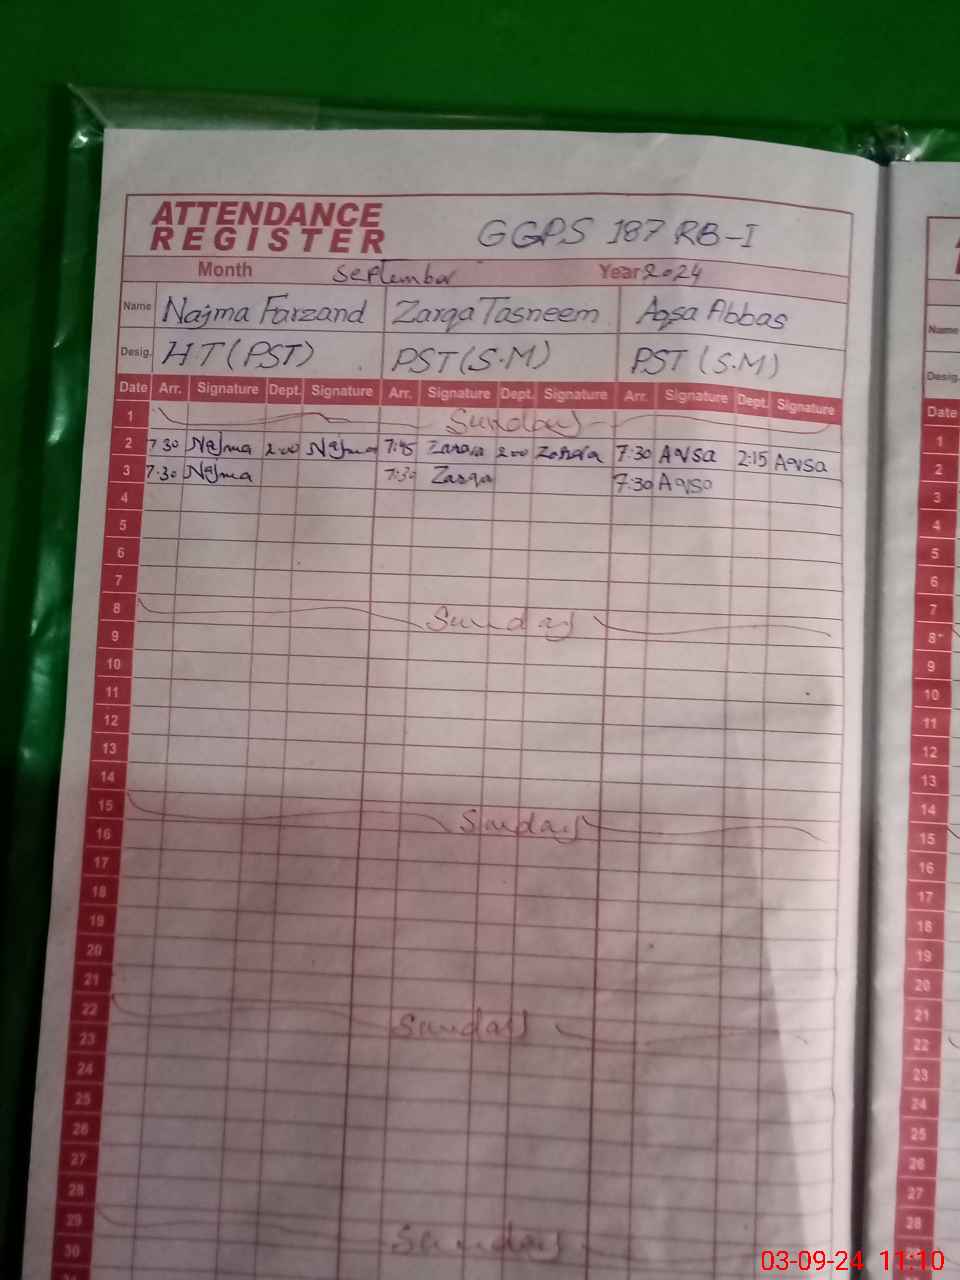 ATTENDANCE
REGISTER
GGPS 187 RB-I
Month September Year 2024
Name Najma Farzand Zarqa Tasneem Aqsa Abbas
Name
Desig. HT (PST) PST (S.M) PST (S.M)
Desig.
Date Arr. Signature Dept. Signature Arr. Signature Dept. Signature Arr. Signature Dept. Signature
Date
1 Sunday
2 7:30 Najma 2:00 Najma 7:45 Zarqa 2:00 Zarqa 7:30 Aqsa 2:15 Aqsa
3 7:30 Najma 7:30 Zarqa 7:30 Aqsa
4
5
6
7
8 Sunday
9
10
11
12
13
14
15 Sunday
16
17
18
19
20
21
22 Sunday
23
24
25
26
27
28
29 Sunday
30
1
2
3
4
5
6
7
8
9
10
11
12
13
14
15
16
17
18
19
20
21
22
23
24
25
26
27
28
03-09-24 11:10